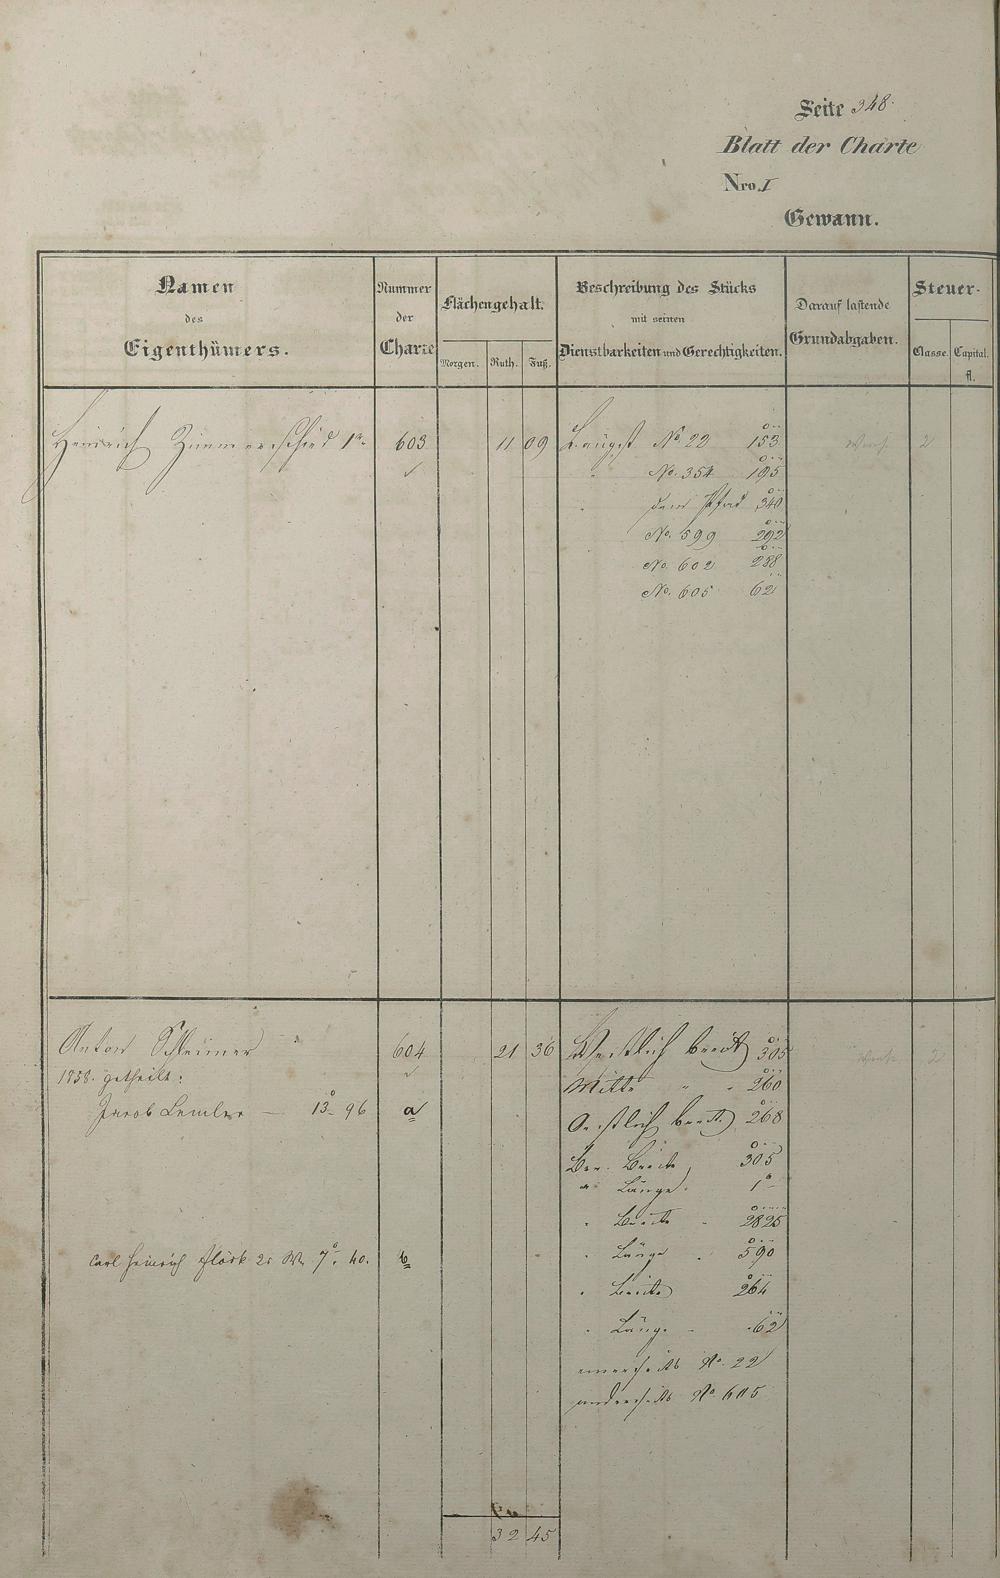 Seite 348.
Blatt der Charte
Nro. I
Gewann.
Namen des Eigenthümers.
Nummer der Charte
Flächengehalt.
Morgen. Ruth. Fuß.
Beschreibung des Stücks mit seinen Dienstbarkeiten und Gerechtigkeiten.
Darauf lastende Grundabgaben.
Steuer-
Classe. Capital. fl.
Heinrich Zimmerschied 1r 603 11 09 Längst No. 22 153 2
No. 354 195
dem Pfad 340
No. 599 292
No. 602 288
No. 605 62
Anton Schleimer 604 21 36 Westlich breit 305 2
1858. getheilt: Mitte " " 260
Jacob Lemler — 13 96 a Oestlich breit 268
Ber. Breite 305
" Länge. 1
" Breite 2825
Carl Heinrich Flöck 2r 7. 40. b " Länge 590
" Breite 264
" Länge 62
einerseits No. 22
anderseits No 605
32 45